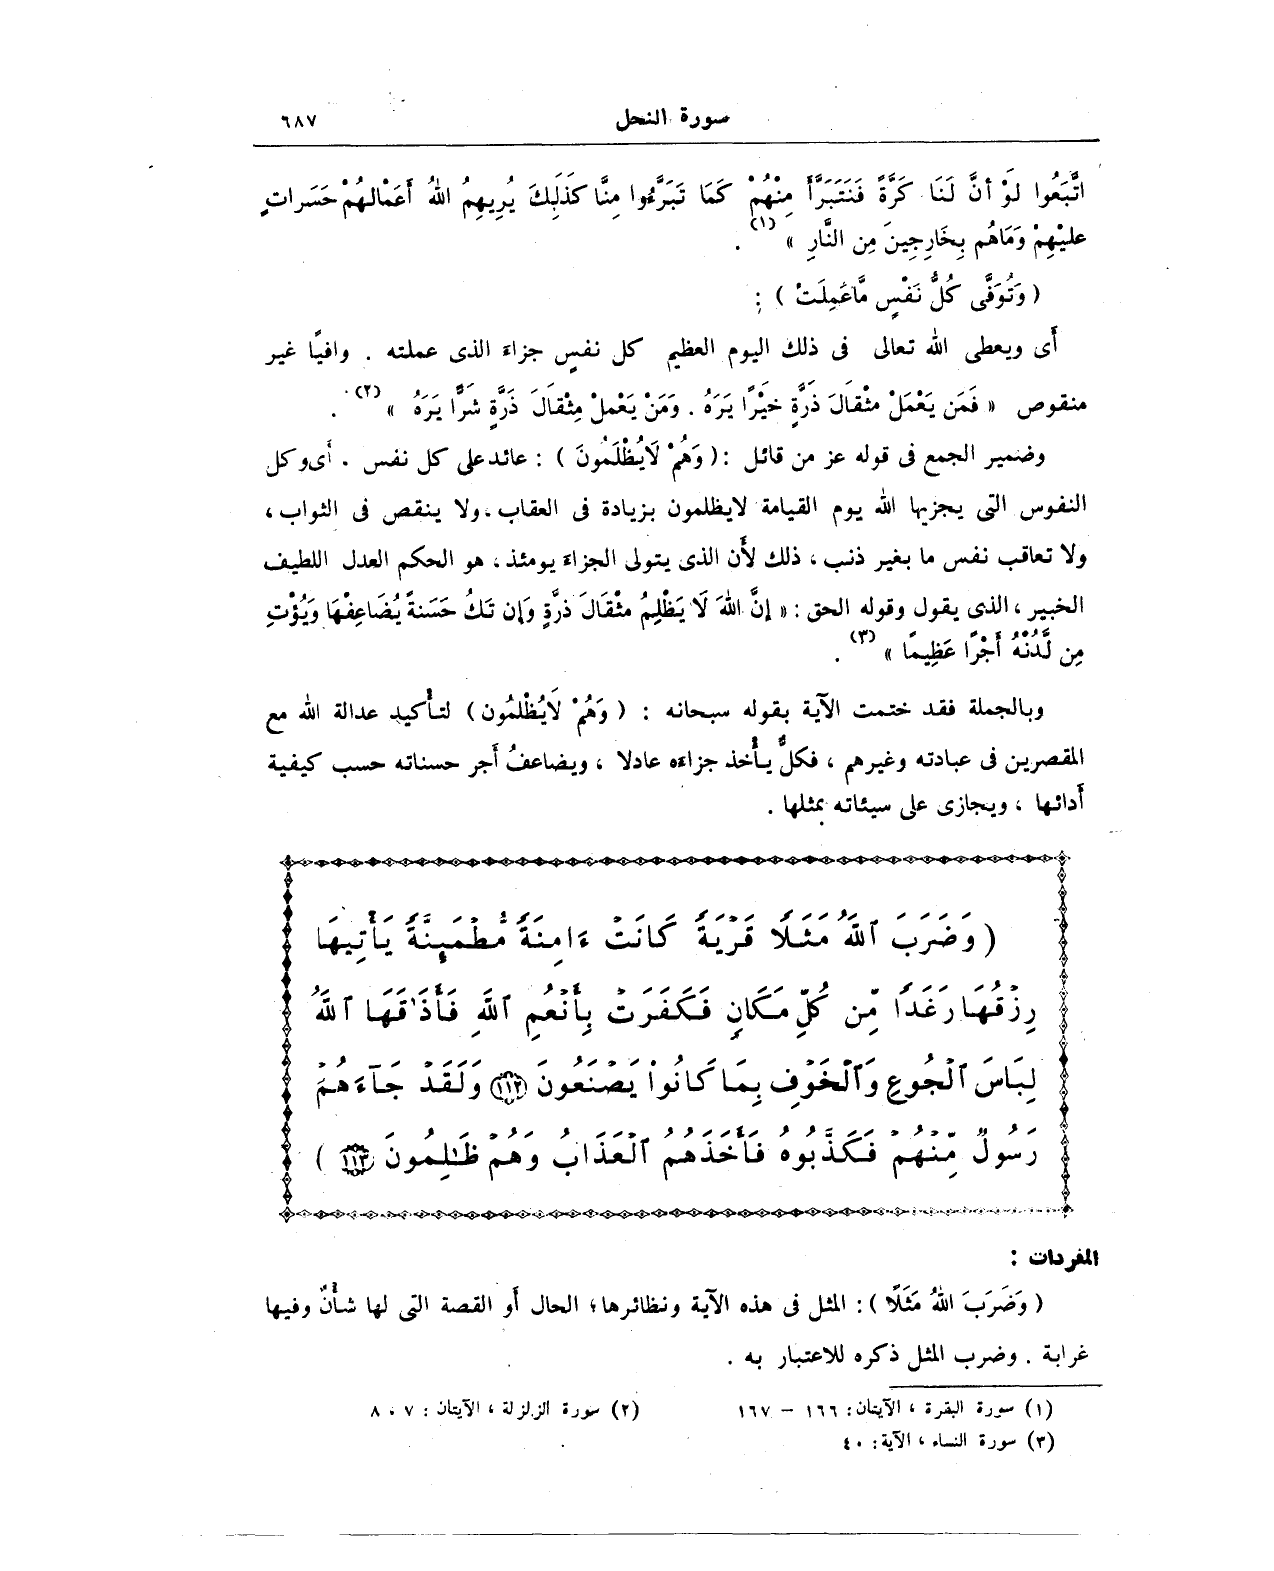 سورة النحل ٦٨٧
اتَّبَعُوا لَوْ أنَّ لَنَا كَرَّةً فَنَتَبَرَّأَ مِنْهُمْ كَمَا تَبَرَّءُوا مِنَّا كَذَلِكَ يُرِيهِمُ اللهُ أَعْمَالهُمْ حَسَراتٍ
عليْهِمْ وَمَاهُم بِخَارِجِينَ مِن النَّارِ » (١) .
( وَتُوَفَّى كُلُّ نَفْسٍ مَّاعَمِلَتْ ) :
أى ويعطى الله تعالى فى ذلك اليوم العظيم كل نفسٍ جزاءَ الذى عملته . وافيًا غير
منقوص « فَمَن يَعْمَلْ مثْقالَ ذَرَّةٍ خيْرًا يَرَهُ . وَمَنْ يَعْملْ مِثْقالَ ذَرَّةٍ شرًّا يَرَهُ » (٢) .
وضمير الجمع فى قوله عز من قائل : ( وَهُمْ لَايُظْلَمُونَ ) : عائد على كل نفس . أى وكل
النفوس التى يجزيها الله يوم القيامة لايظلمون بزيادة فى العقاب . ولا ينقص فى الثواب ،
ولا تعاقب نفس ما بغير ذنب ، ذلك لأَن الذى يتولى الجزاءَ يومئذ ، هو الحكم العدل اللطيف
الخبير ، الذى يقول وقوله الحق : « إنَّ اللهَ لَا يَظْلِمُ مثْقَالَ ذرَّةٍ وَإن تَكُ حَسَنةً يُضَاعِفْهَا وَيُؤْتِ
مِن لَّدُنْهُ أَجْرًا عَظِيمًا » (٣) .
وبالجملة فقد ختمت الآية بقوله سبحانه : ( وَهُمْ لَايُظْلمُون ) لتأْكيد عدالة الله مع
المقصرين فى عبادته وغيرهم ، فكلٌّ يأْخذ جزاءَه عادلا ، ويضاعفُ أَجر حسناته حسب كيفية
أَدائها ، ويجازى على سيئاته بمثلها .
( وَضَرَبَ ٱللَّهُ مَثَلًا قَرْيَةً كَانَتْ ءَامِنَةً مُّطْمَئِنَّةً يَأْتِيهَا
رِزْقُهَا رَغَدًا مِّن كُلِّ مَكَانٍ فَكَفَرَتْ بِأَنْعُمِ ٱللَّهِ فَأَذَٰقَهَا ٱللَّهُ
لِبَاسَ ٱلْجُوعِ وَٱلْخَوْفِ بِمَا كَانُوا۟ يَصْنَعُونَ ۝١١٢ وَلَقَدْ جَآءَهُمْ
رَسُولٌ مِّنْهُمْ فَكَذَّبُوهُ فَأَخَذَهُمُ ٱلْعَذَابُ وَهُمْ ظَٰلِمُونَ ۝١١٣ )
المفردات :
( وَضَرَبَ اللهُ مَثَلًا ) : المثل فى هذه الآية ونظائرها؛ الحال أَو القصة التى لها شأْنٌ وفيها
غرابة . وضرب المثل ذكره للاعتبار به .
(١) سورة البقرة ، الآيتان : ١٦٦ – ١٦٧ (٢) سورة الزلزلة ، الآيتان : ٧ ، ٨
(٣) سورة النساء ، الآية : ٤٠